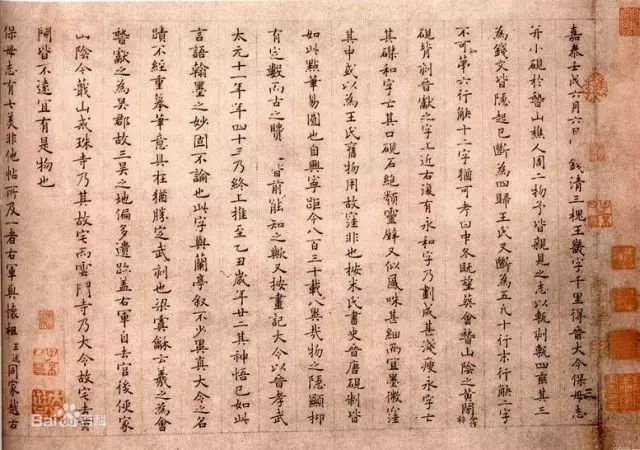 嘉泰壬戌六月六日錢清三槐王畿字千里得晉大令保母志
并小硯於稽山樵人周二物予皆親見之志以甎刻甎四垂其三
為錢文皆隱起已斷為四歸王氏又斷為五凡十行末行缺二字
不可第六行缺十二字猶可考曰中冬既望葬會稽山陰之黃閍
硯背刻晉獻之字上近右復有永和字乃劃成甚淺瘦永字亡
其磔和字亡其口硯石絕類靈壁又似鳳咮甚細而宜墨微窪
其中或以為王氏舊物用故窪非也按米氏畫史晉唐硯制皆
如此點筆易圓也自興寧距今八百三十載八異哉物之隱顯抑
有定數而古之賢前能知之歟又按畫記大令以晉孝武
太元十一年年四十三乃終上推至乙丑歲年廿二其神悟已如此
言語翰墨之妙固不論也此字與蘭亭敘不少異真大令之名
蹟不經重摹筆意具在猶勝定武刻也梁虞龢云羲之為會
稽獻之為吳郡故三吳之地偏多遺跡蓋右軍自去官後便家
山陰今蕺山戒珠寺乃其故宅而雲門寺乃大令故宅去黃
閍皆不遠宜有是物也
保母志有七美非他帖所及一者右軍與懷祖王述同家越右
Bai百科